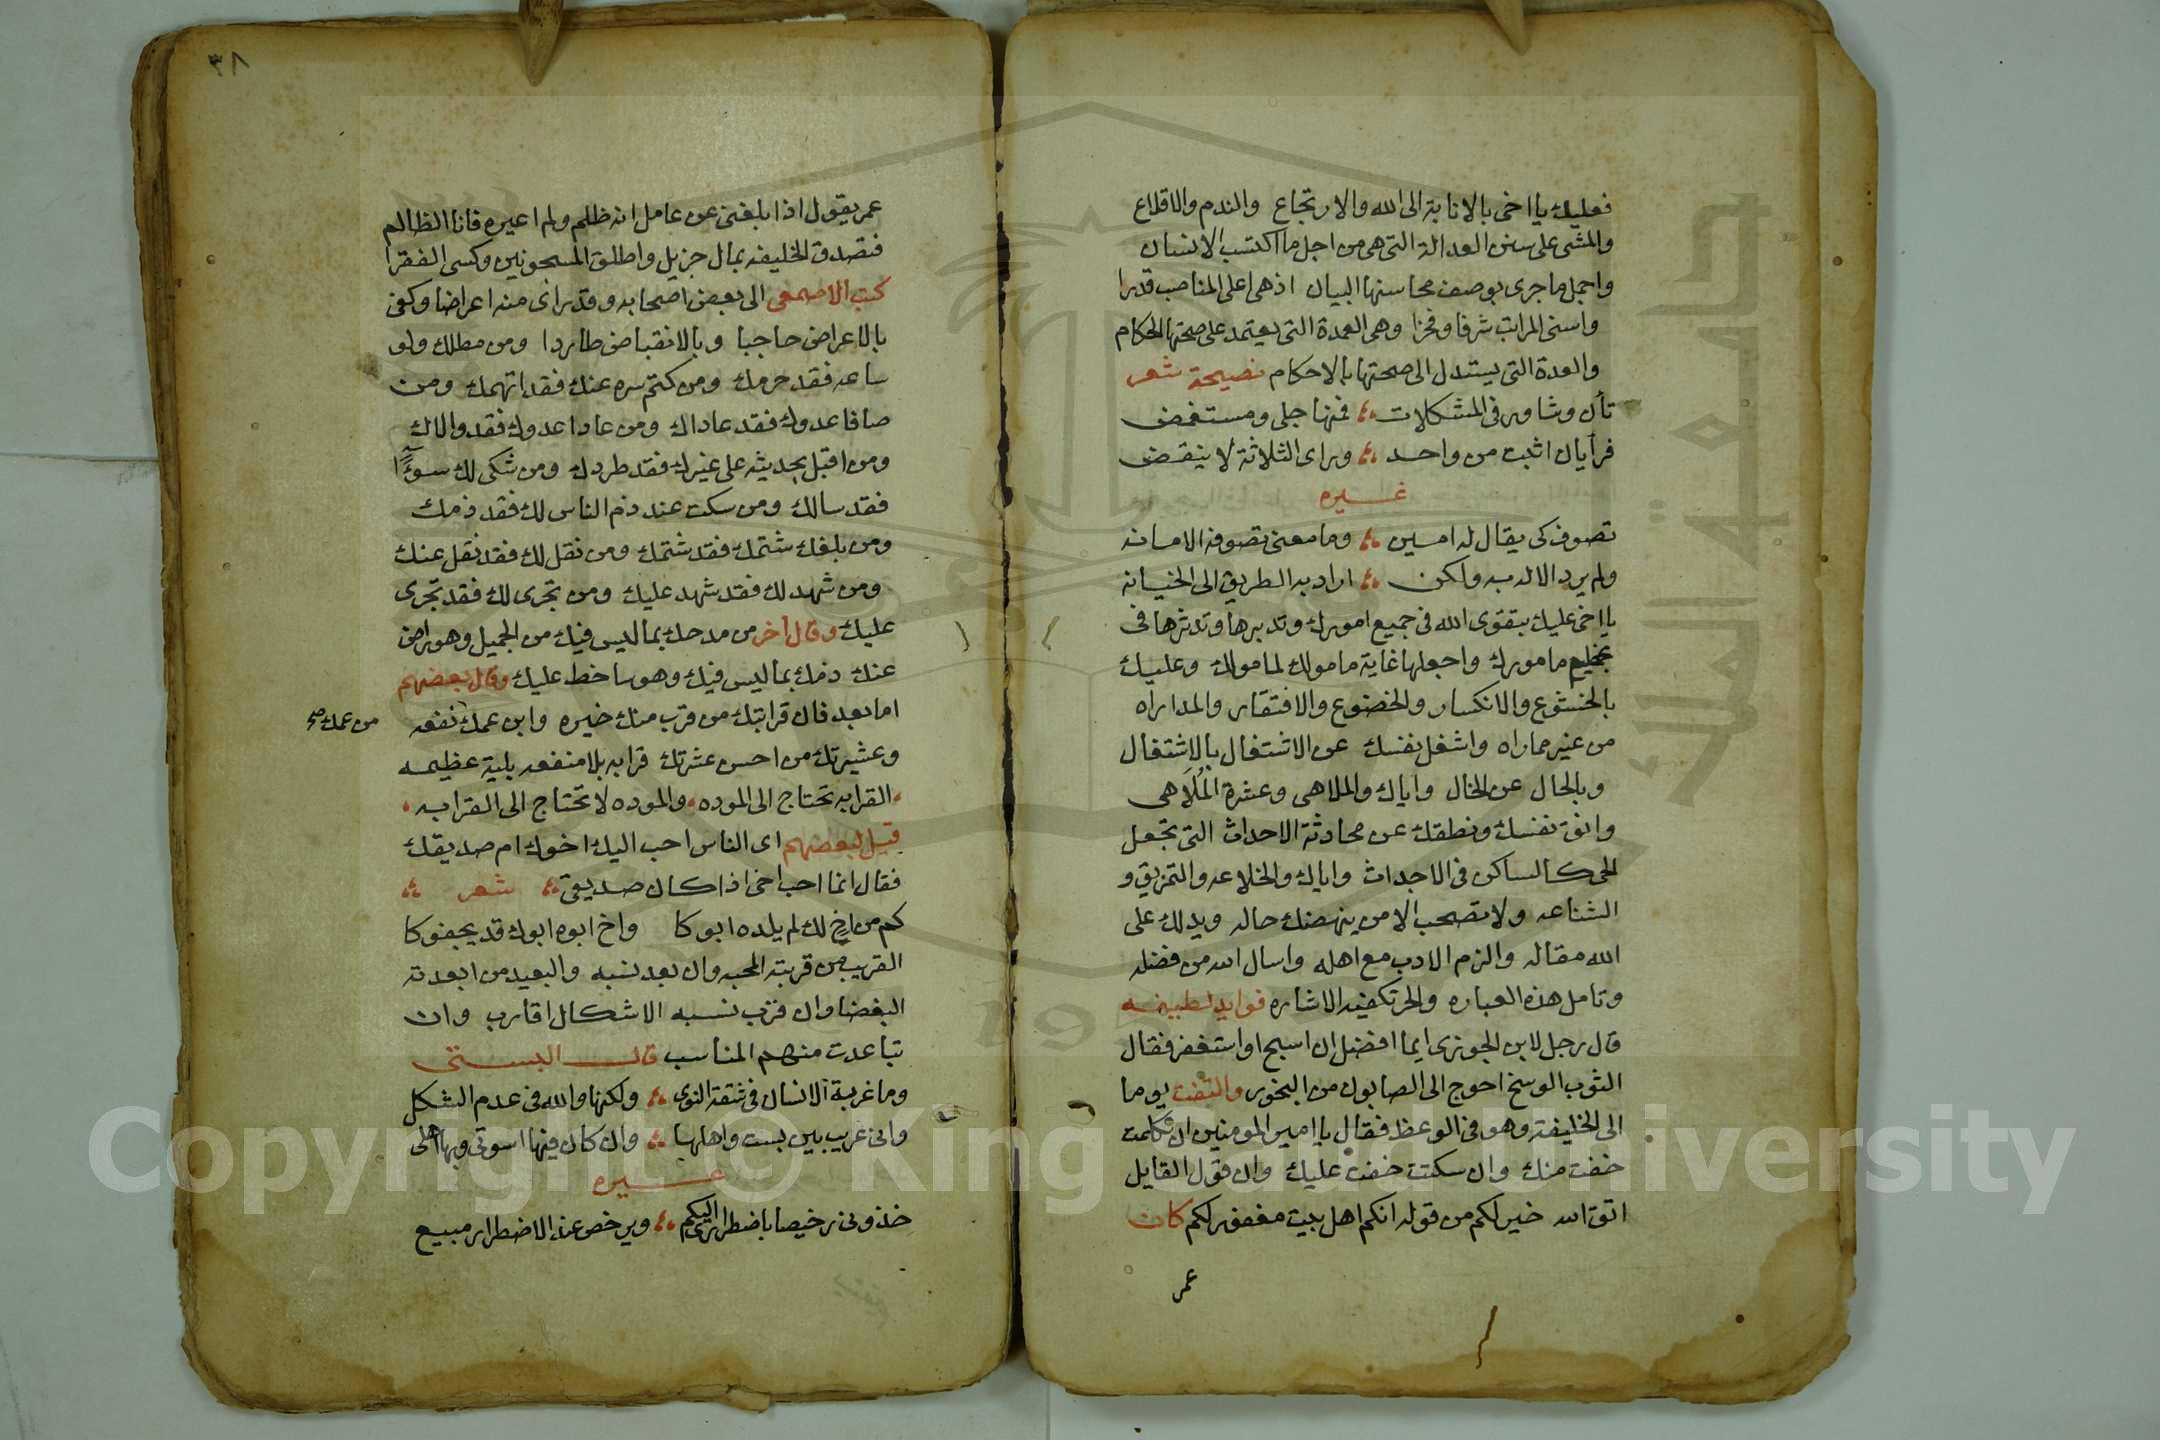 فعليك يا اخي بالانابة الى الله والارتجاع والندم والاقلاع
والمشي على سنن العدالة التي هي من اجل ما اكتسب الانسان
واجمل ما جرى بوصف محاسنها البيان اذ هي اعلى المناصب قدرا
واسنى المراتب شرفا وفخرا وهي العمدة التي يعتمد على صحتها الحكام
والعدة التي يستدل الى صحتها بالاحكام نصيحة شعر
تأن وشاور في المشكلات فمنها جلي ومستغمض
فرأيان اثبت من واحد وراى الثلاثة لا ينقض
غيره
تصوف كي يقال له امين وما معنى تصوفه الامانه
ولم يرد الاله به ولكن اراد به الطريق الى الخيانه
يا اخي عليك بتقوى الله في جميع امورك وتدبرها وتدثرها في
مامورك واجعلها غاية مامولك لمامولك وعليك
بالخشوع والانكسار والخضوع والافتقار والمداراه
من غير مماراه واشغل نفسك عن الاشتغال بالاشتغال
وبالحال عن الخال واياك والملاهي وعشرة المُلَاهي
وانف نفسك ونطقك عن محادثة الاحداث التي تجعل
الحي كالساكن في الاجداث واياك والخلاعه والتمزيق و
الشناعه ولا تصحب الا من ينهضك حاله ويدلك على
الله مقاله والزم الادب مع اهله واسال الله من فضله
وتامل هذه العباره والحر تكفيه الاشاره فوايد لطيفه
قال رجل لابن الجوزي ايما افضل ان اسبح او استغفر فقال
الثوب الوسخ احوج الى الصابون من البخور والتفت يوما
الى الخليفة وهو في الوعظ فقال يا امير المومنين ان تكلمت
خفت منك وان سكتت خفت عليك وان قول القايل
اتق الله خير لكم من قوله انكم اهل بيت مغفور لكم كان
عمر
٣٨
عمر يقول اذا بلغني عن عامل انه ظلم ولم اغيره فانا الظالم
فتصدق الخليفه بمال جزيل واطلق المسجونين وكسى الفقرا
كتب الاصمعي الى بعض اصحابه وقد راى منه اعراضا وكفى
بالاعراض حاجبا وبالانقباض طاردا ومن مطلك ولو
ساعه فقد حرمك ومن كتم سره عنك فقد اتهمك ومن
صافا عدوك فقد عاداك ومن عادا عدوك فقد والاك
ومن اقبل بحديثه على غيرك فقد طردك ومن شكى لك سوءًا
فقد سالك ومن سكت عند ذم الناس لك فقد ذمك
ومن بلغك شتمك فقد شتمك ومن نقل لك فقد نقل عنك
ومن شهد لك فقد شهد عليك ومن تجرى لك فقد تجرى
عليك وقال آخر من مدحك بما ليس فيك من الجميل وهو راض
عنك ذمك بما ليس فيك وهو ساخط عليك وقال بعضهم
اما بعد فان قرابتك من قرب منك خيره وابن عمك نفعه
من عمك صح
وعشيرتك من احسن عشرتك قرابه بلا منفعه بلية عظيمه
القرابه تحتاج الى الموده والموده لا تحتاج الى القرابه
قيل لبعضهم اى الناس احب اليك اخوك ام صديقك
فقال انما احب اخي اذا كان صديقي شعر
كم من اخ لك لم يلده ابوكا واخ ابوه ابوك قد يجفوكا
القريب من قربته المحبه وان بعد نسبه والبعيد من ابعدته
البغضا وان قرب نسبه الاشكال اقارب وان
تباعدت منهم المناسب قال البستى
وما غربة الانسان في شقة النوى ولكنها والله في عدم الشكل
واني غريب بين بست واهلها وان كان فيها اسرتي وبها اهلى
غيره
خذوني رخيصا باضطراري اليكم ويرخص عند الاضطرار مبيع
Copyright © King Saud University